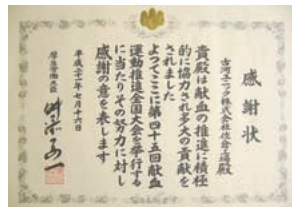 感謝状
古河ユニック株式会社佐倉工場殿
貴殿は献血の推進に積極
的に協力され多大の貢献を
されました
よってここに第四十五回献血
運動推進全国大会を挙行する
に当たりその努力に対し
感謝の意を表します
平成二十一年七月十六日
厚生労働大臣 舛添要一